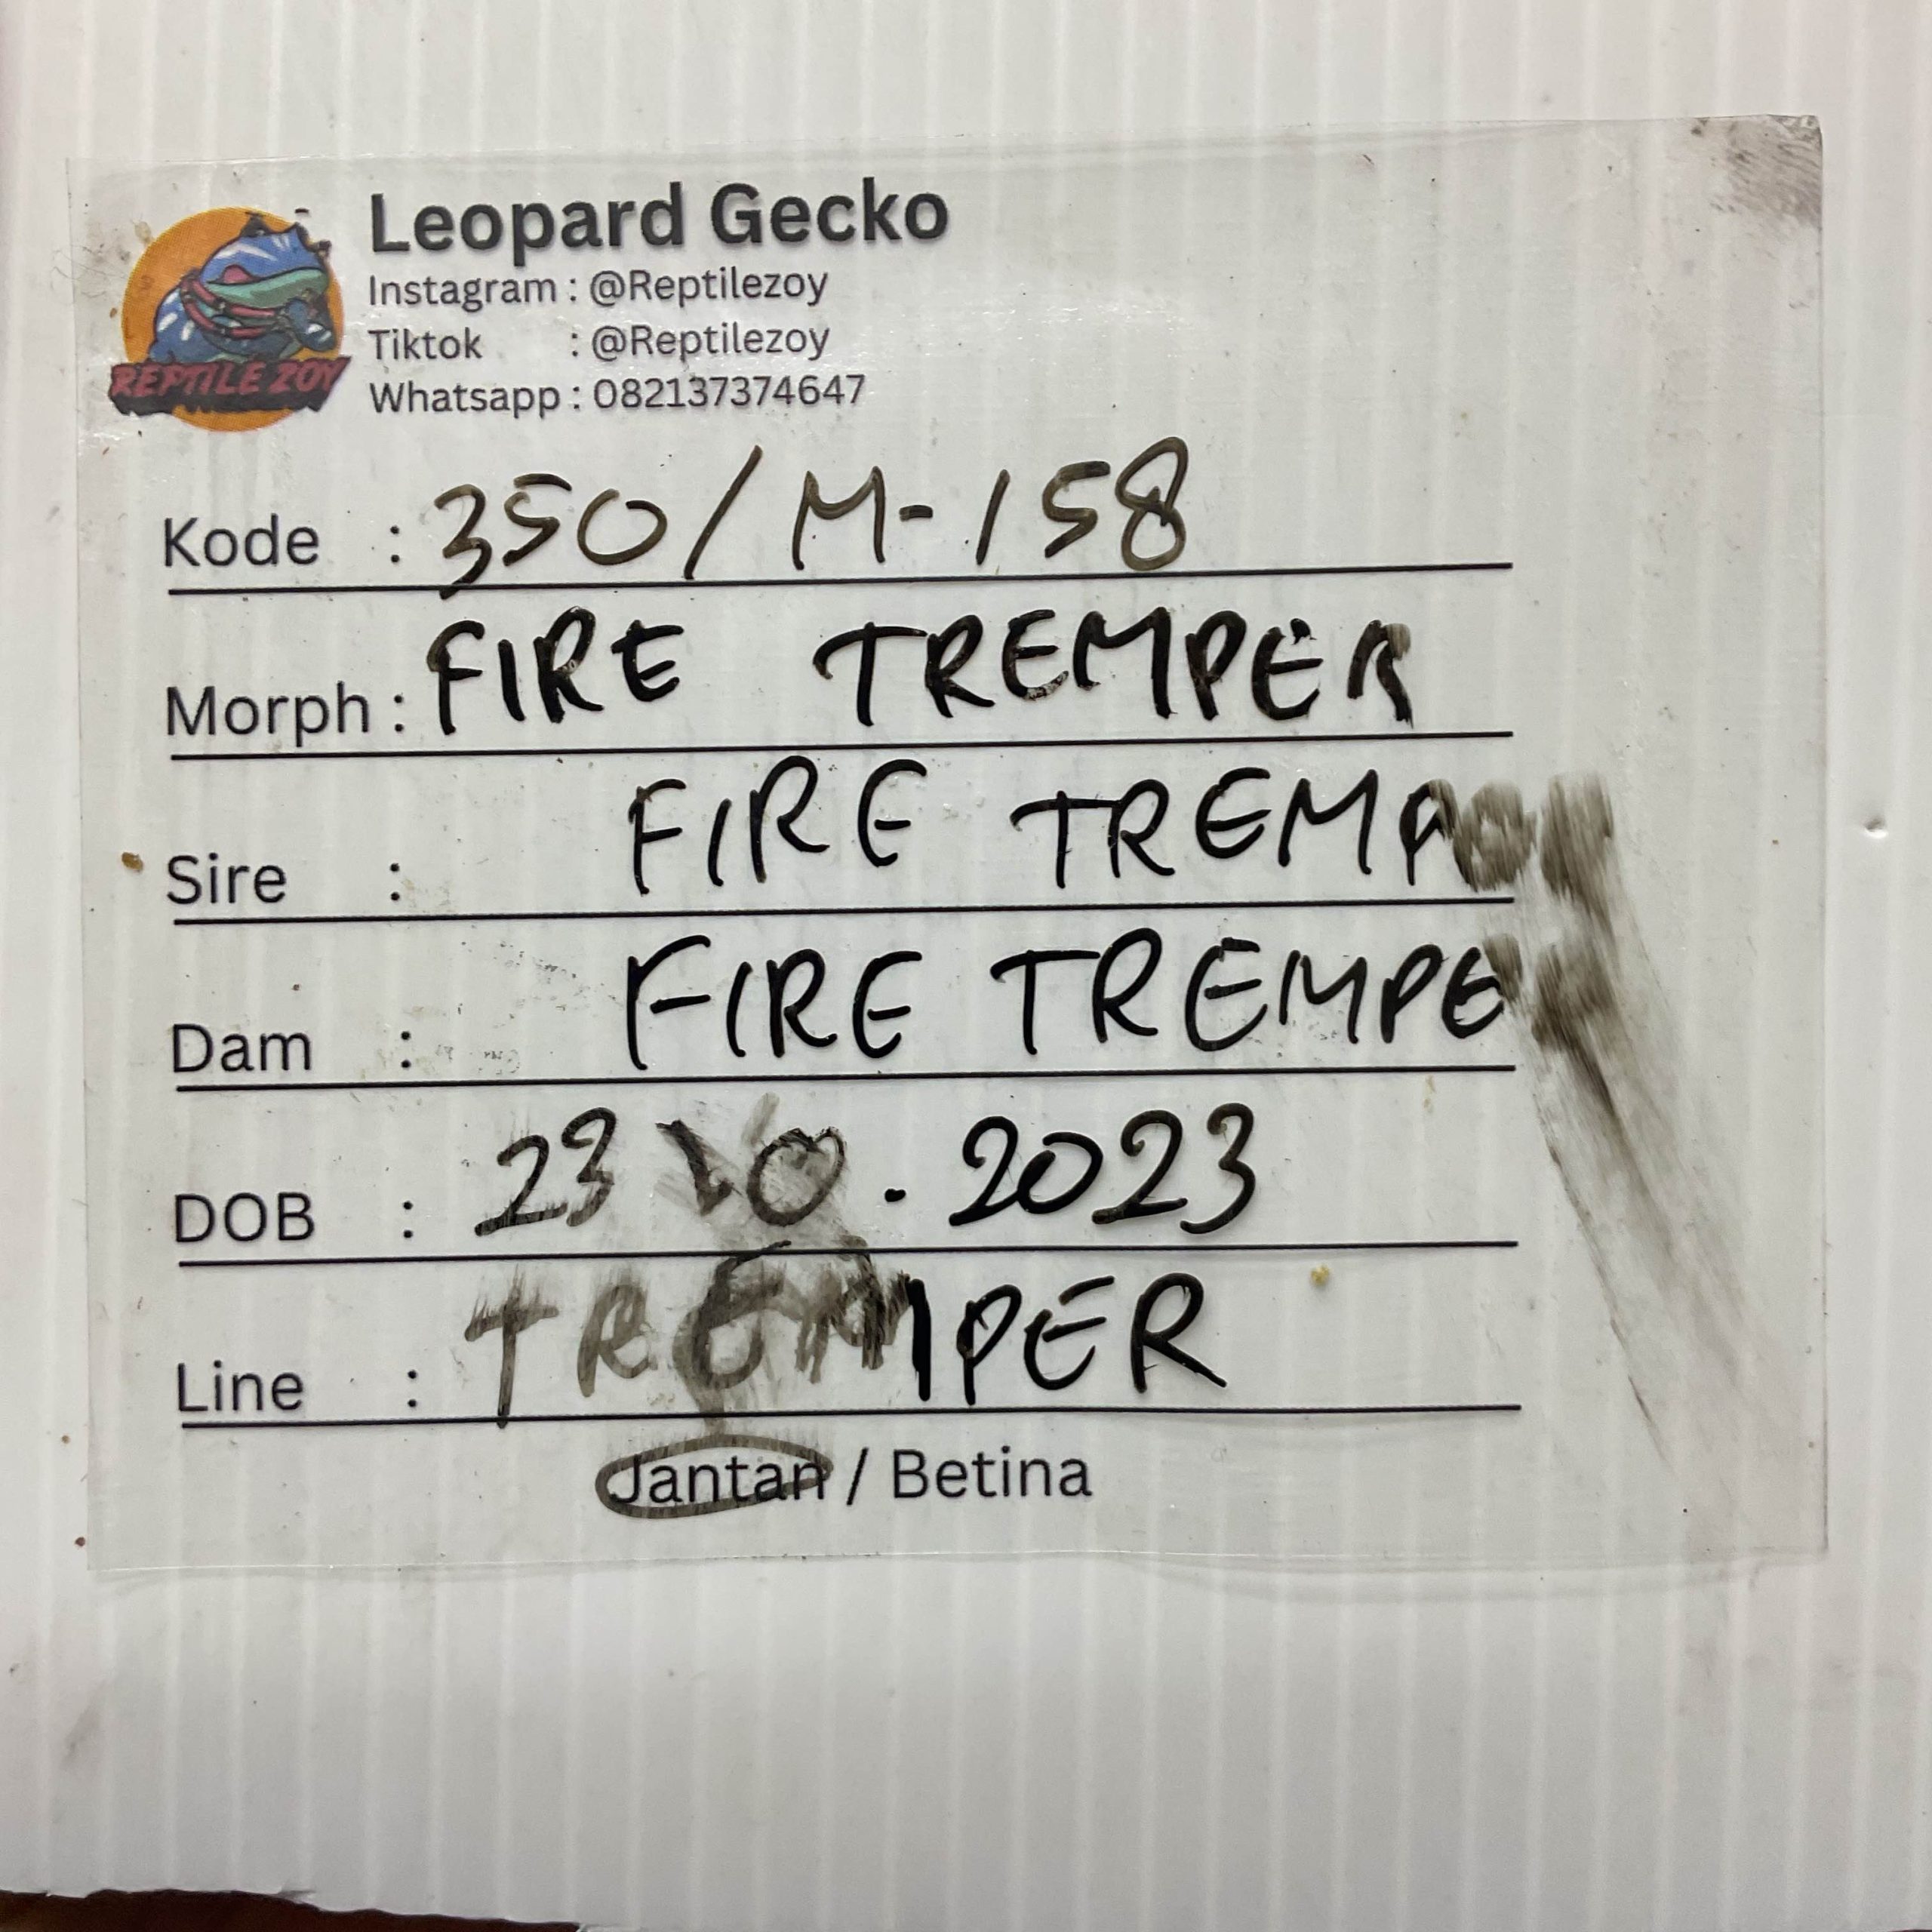 REPTILE ZOY
Leopard Gecko
Instagram : @Reptilezoy
Tiktok : @Reptilezoy
Whatsapp : 082137374647
Kode : 350/M-158
Morph : FIRE TREMPER
Sire : FIRE
Dam : FIRE TREMPE
DOB : 23 10 . 2023
Line : TREMPER
Jantan / Betina